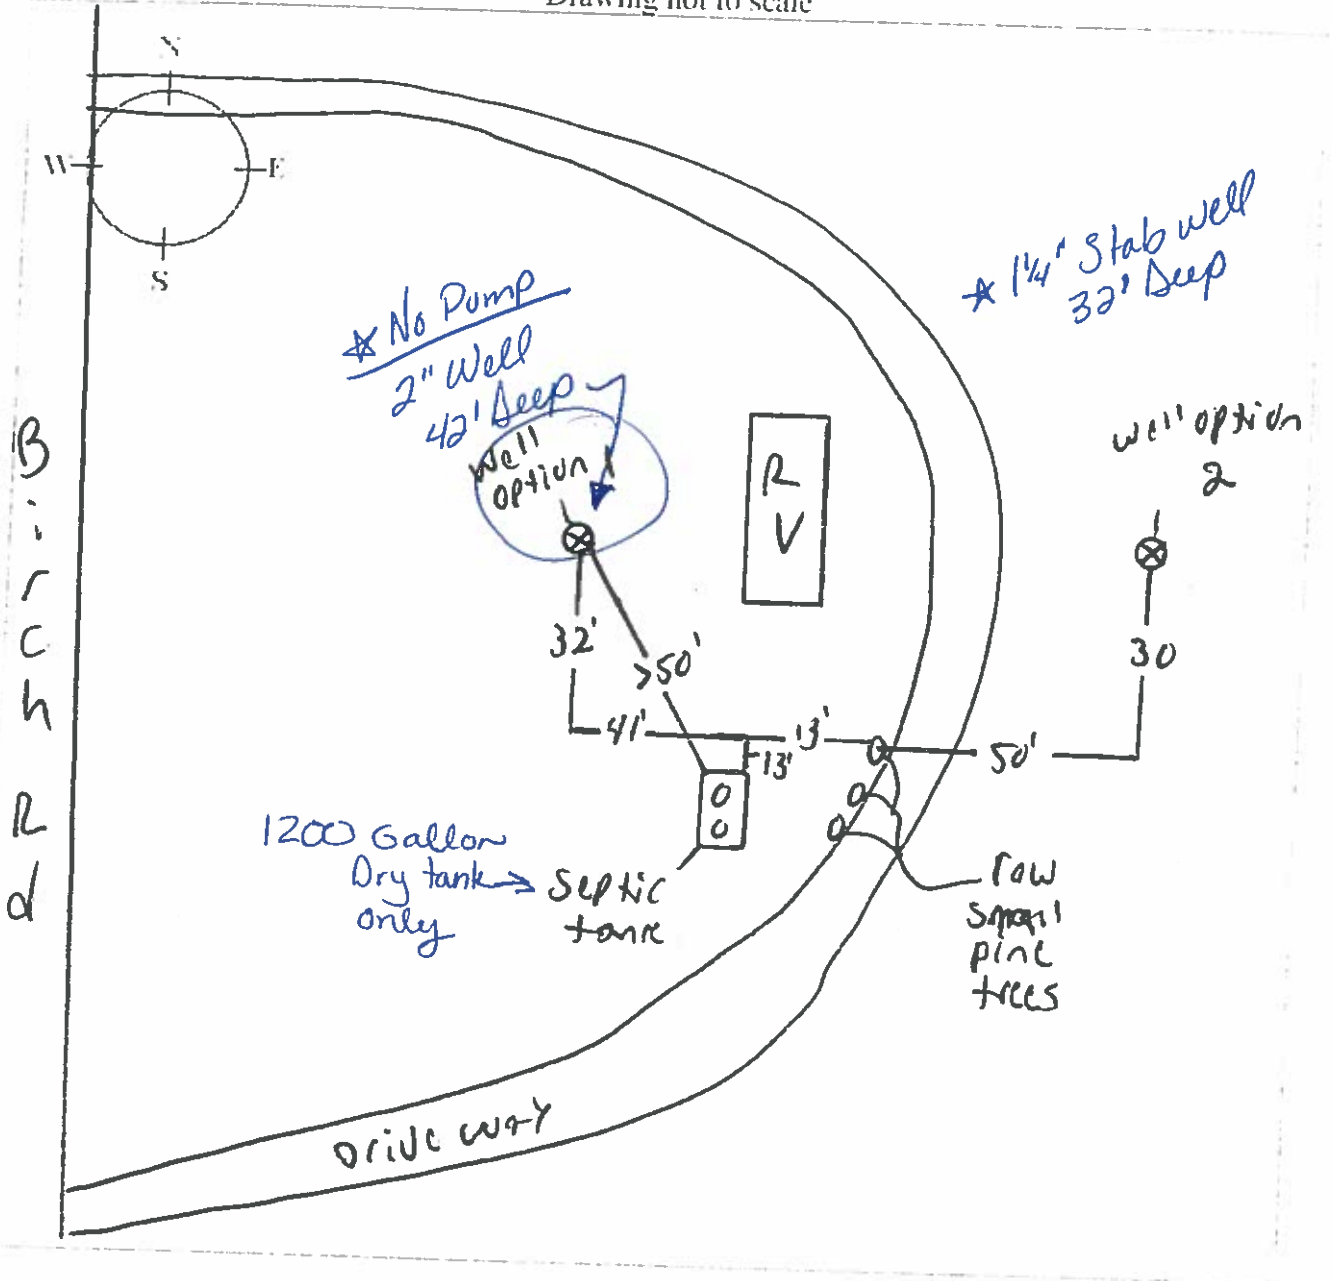 Drawing not to scale
N
W
E
S
Birch Rd
★ No Pump
2" Well
42' Deep
★ 1¼" Stab well
32' Deep
well
option 1
RV
well option
2
32'
>50'
30
41'
13'
13'
50'
O
O
1200 Gallon
Dry tank →
only
Septic
tank
row
small
pine
trees
Driveway